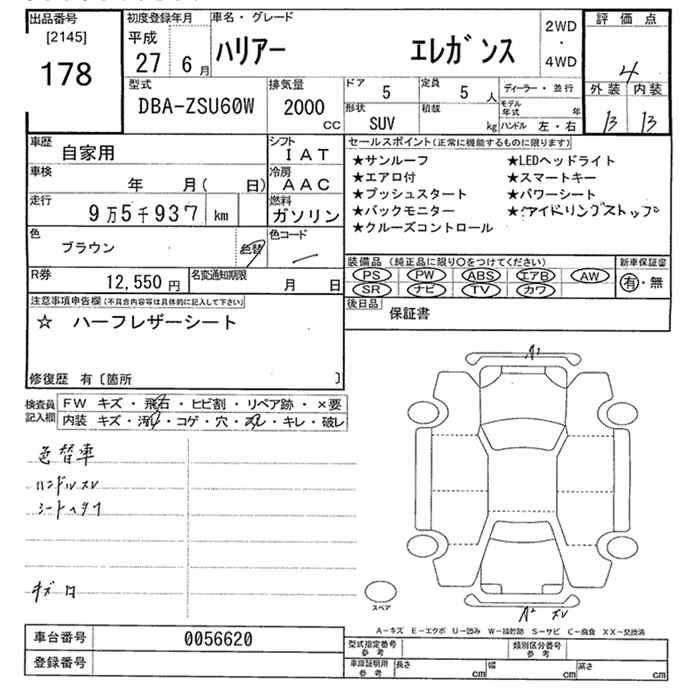 出品番号
[2145]
178
初度登録年月
平成
27 6月
車名・グレード
ハリアー エレガンス
2WD
・
4WD
評価点
4
外装 内装
B B
型式
DBA-ZSU60W
排気量
2000
CC
ドア
5
定員
5人
形状
SUV
積載
kg
ディーラー・並行
モデル年式 年
ハンドル 左・右
車歴
自家用
シフト
IAT
車検
年 月( 日)
冷房
AAC
走行
9万5千937 km
燃料
ガソリン
色
ブラウン
色替
色コード
R券
12,550円
名変通知期限
月 日
セールスポイント(正常に機能するものに限ります)
★サンルーフ ★LEDヘッドライト
★エアロ付 ★スマートキー
★プッシュスタート ★パワーシート
★バックモニター ★アイドリングストップ
★クルーズコントロール
装備品(純正品に限り○をつけてください)
PS PW ABS エアB AW
SR ナビ TV カワ
新車保証書
有・無
後日品
保証書
注意事項申告欄(不具合内容等は具体的に記入して下さい)
☆ ハーフレザーシート
修復歴 有〔箇所 〕
検査員
記入欄
FW キズ・飛石・ヒビ割・リペア跡・×要
内装 キズ・汚・コゲ・穴・スレ・キレ・破レ
色替車
ハンドルスレ
シートヘタリ
キズ
A1
スペア
A2 スレ
A-キズ E-エクボ U-凹み W-補修跡 S-サビ C-腐食 XX-交換済
車台番号
0056620
登録番号
型式指定番号
参考
類別区分番号
参考
車庫証明用
参考
長さ cm 幅 cm 高さ cm